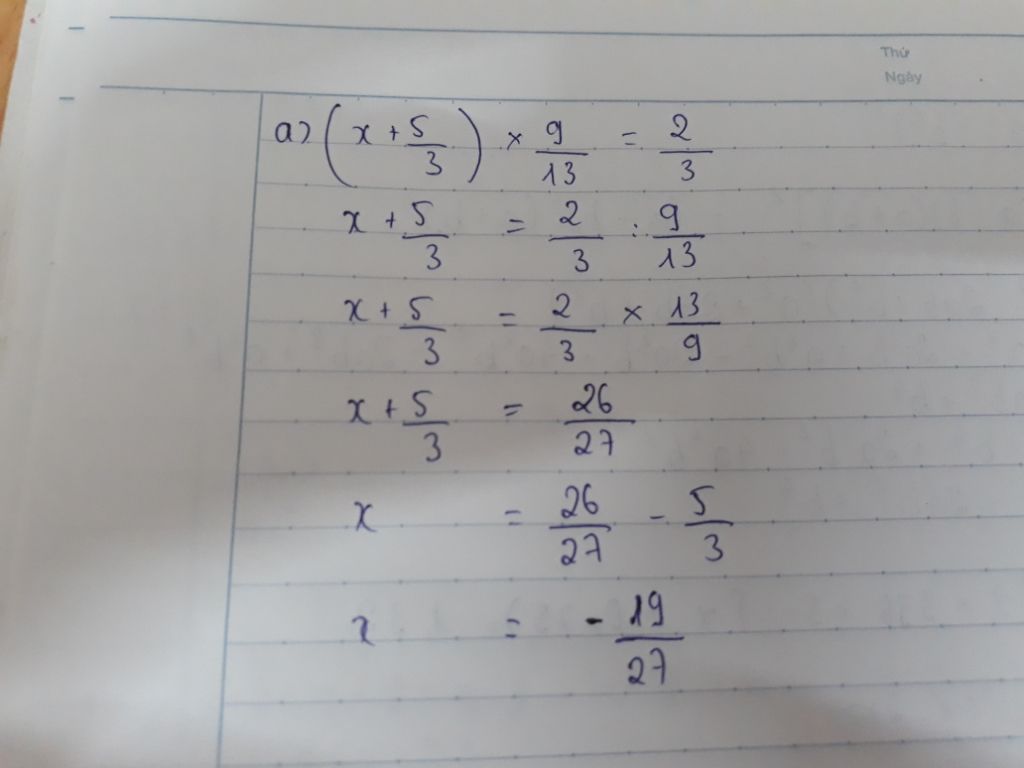 Thứ
Ngày
a) (x + 5/3) × 9/13 = 2/3
x + 5/3 = 2/3 : 9/13
x + 5/3 = 2/3 × 13/9
x + 5/3 = 26/27
x = 26/27 - 5/3
x = - 19/27